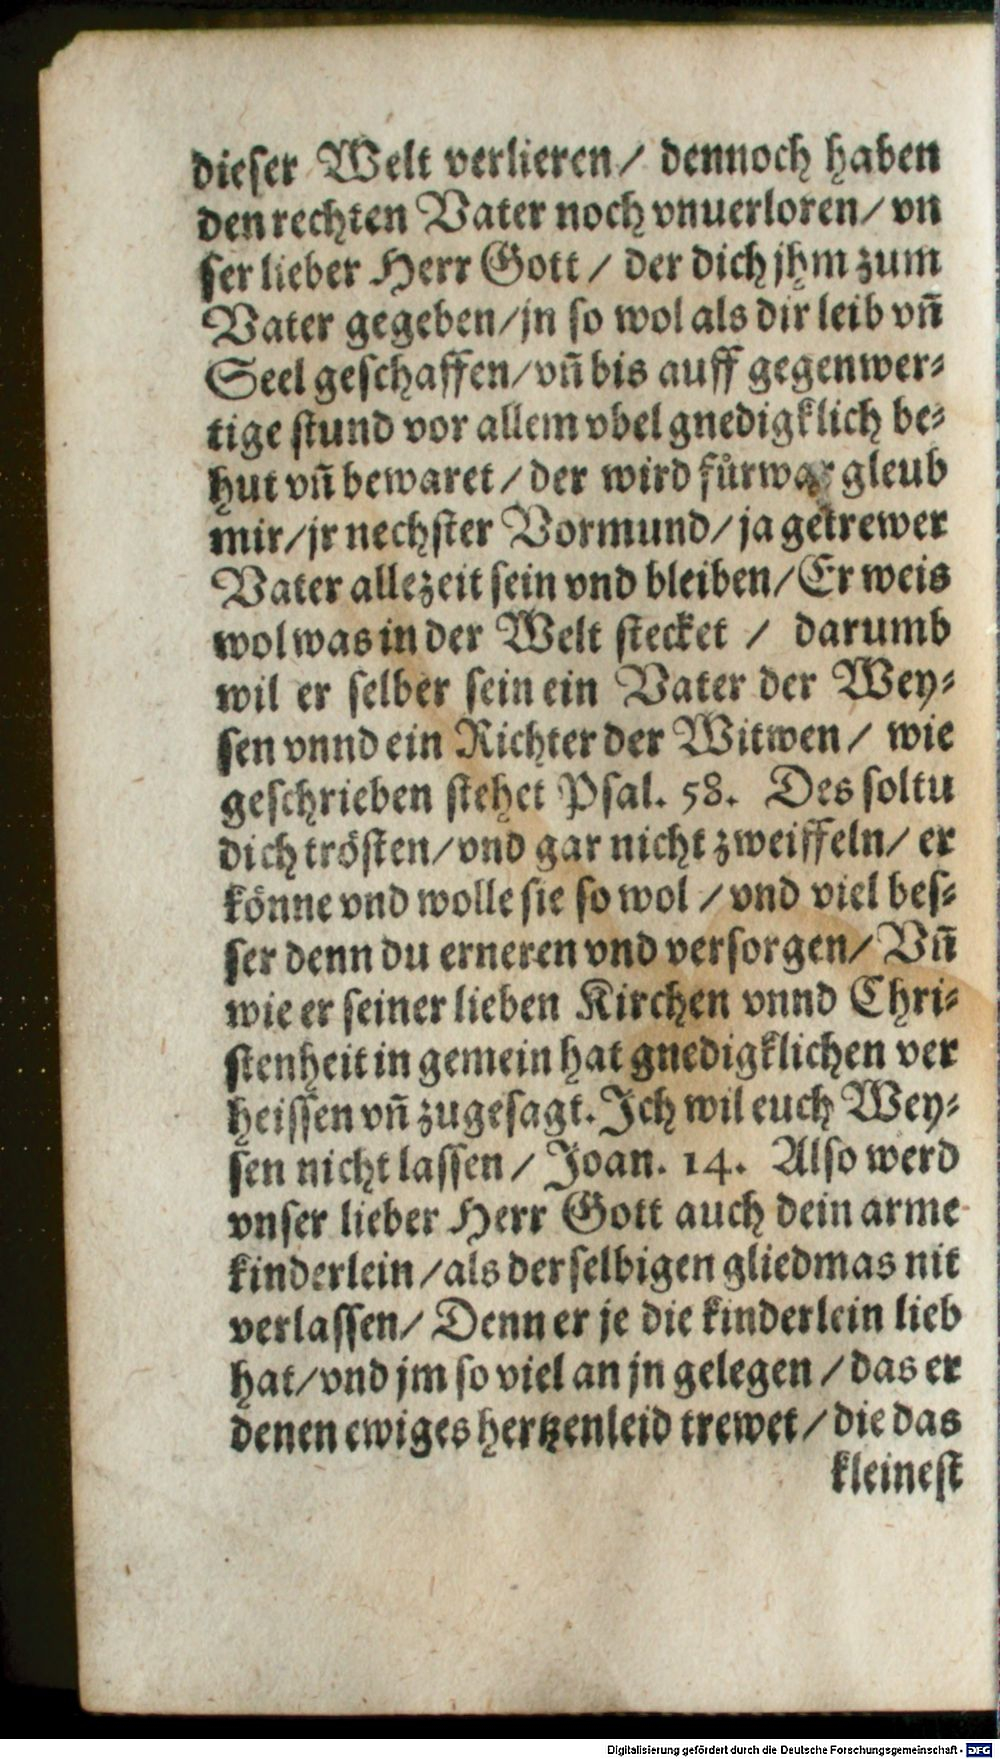 dieser Welt verlieren/ dennoch haben
den rechten Vater noch vnuerloren/ vn
ser lieber Herr Gott / der dich jhm zum
Vater gegeben/jn so wol als dir leib vñ
Seel geschaffen/vñ bis auff gegenwer⸗
tige stund vor allem vbel gnedigklich be⸗
hut vñ bewaret / der wird fůrwar gleub
mir/jr nechster Vormund/ ja getrewer
Vater allezeit sein vnd bleiben/Er weis
wol was in der Welt stecket / darumb
wil er selber sein ein Vater der Wey⸗
sen vnnd ein Richter der Witwen / wie
geschrieben stehet Psal. 58. Des soltu
dich trösten/vnd gar nicht zweiffeln/ er
könne vnd wolle sie so wol / vnd viel bes⸗
ser denn du erneren vnd versorgen/ Vñ
wie er seiner lieben Kirchen vnnd Chri⸗
stenheit in gemein hat gnedigklichen ver
heissen vñ zugesagt. Ich wil euch Wey⸗
sen nicht lassen / Joan. 14. Also werd
vnser lieber Herr Gott auch dein arme
kinderlein/als derselbigen gliedmas nit
verlassen/ Denn er je die kinderlein lieb
hat/vnd jm so viel an jn gelegen / das er
denen ewiges hertzenleid trewet/ die das
kleinest
Digitalisierung gefördert durch die Deutsche Forschungsgemeinschaft - DFG